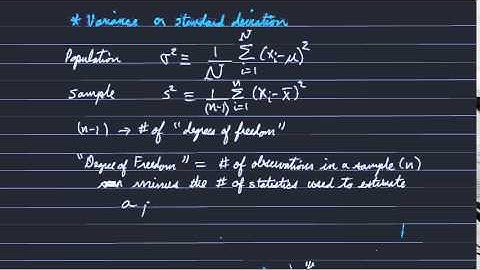 * Variance or standard deviation
Population σ² ≡ 1/N Σ_{i=1}^{N} (xᵢ-μ)²
Sample s² ≡ 1/(n-1) Σ_{i=1}^{n} (xᵢ-x̄)²
(n-1) → # of "degrees of freedom"
"Degree of Freedom" = # of observations in a sample (n)
minus the # of statistics used to estimate
a